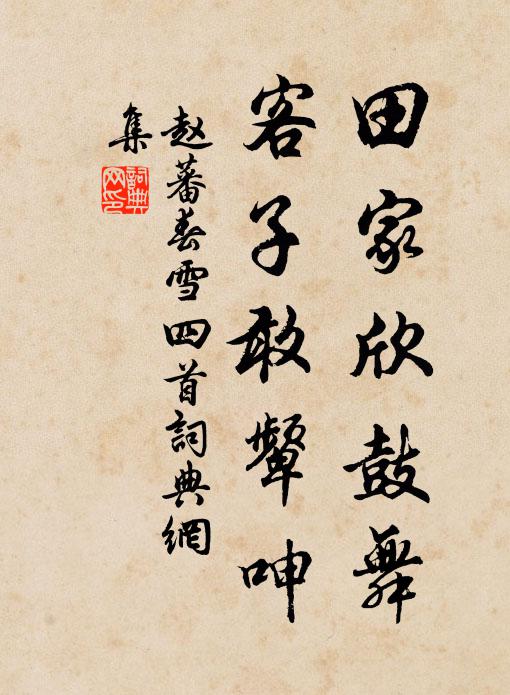 田家欣鼓舞
客子敢顰呻
赵蕃春雪四首詞典網
集
詞典网印